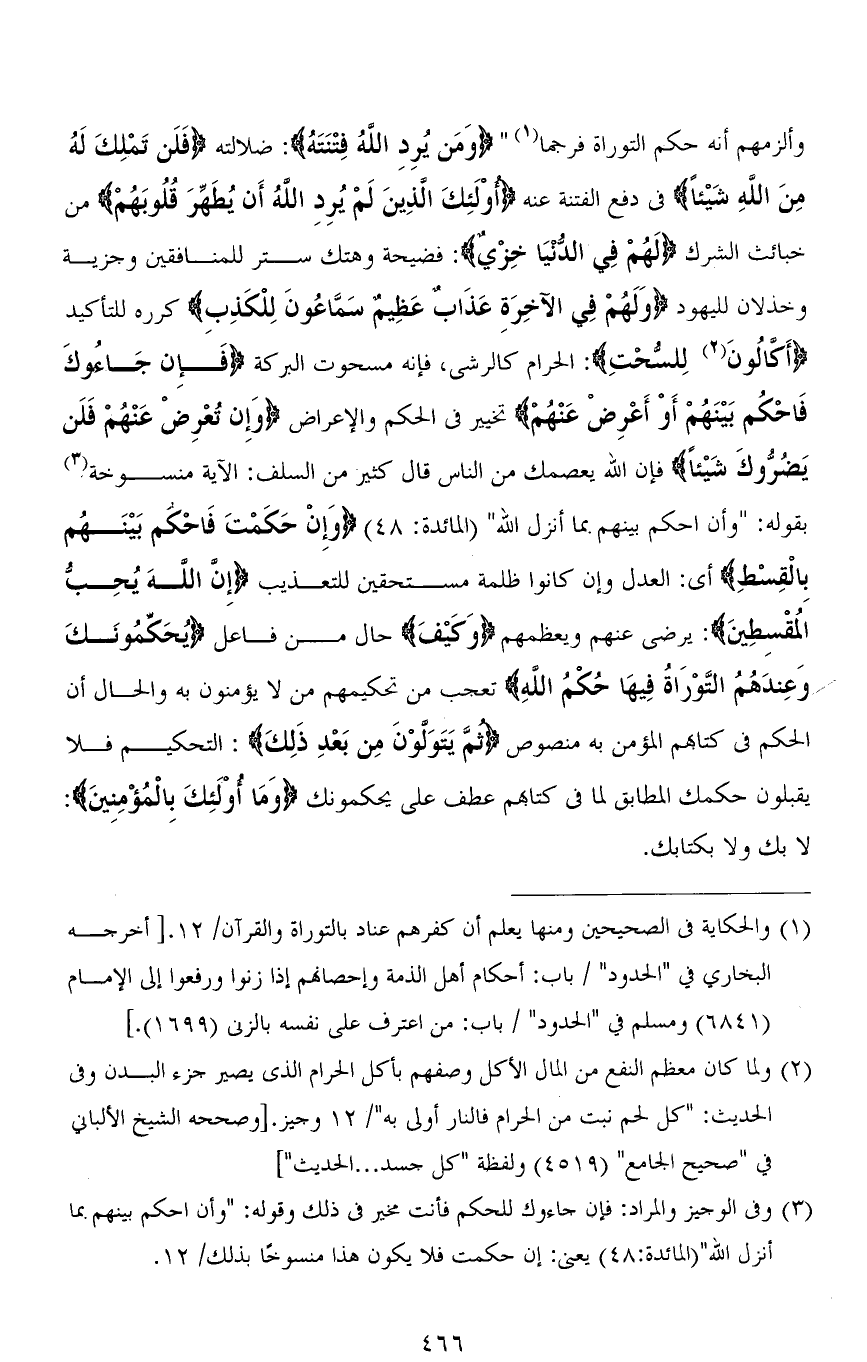 وألزمهم أنه حكم التوراة فرجما(١) " ﴿وَمَن يُرِدِ اللَّهُ فِتْنَتَهُ﴾: ضلالته ﴿فَلَن تَمْلِكَ لَهُ
مِنَ اللَّهِ شَيْئاً﴾ فى دفع الفتنة عنه ﴿أُوْلَئِكَ الَّذِينَ لَمْ يُرِدِ اللَّهُ أَن يُطَهِّرَ قُلُوبَهُمْ﴾ من
خبائث الشرك ﴿لَهُمْ فِي الدُّنْيَا خِزْيٌ﴾: فضيحة وهتك ستر للمنافقين وجزية
وخذلان لليهود ﴿وَلَهُمْ فِي الآخِرَةِ عَذَابٌ عَظِيمٌ سَمَّاعُونَ لِلْكَذِبِ﴾ كرره للتأكيد
﴿أَكَّالُونَ(٢) لِلسُّحْتِ﴾: الحرام كالرشى، فإنه مسحوت البركة ﴿فَإِن جَاءُوكَ
فَاحْكُم بَيْنَهُمْ أَوْ أَعْرِضْ عَنْهُمْ﴾ تخيير فى الحكم والإعراض ﴿وَإِن تُعْرِضْ عَنْهُمْ فَلَن
يَضُرُّوكَ شَيْئاً﴾ فإن الله يعصمك من الناس قال كثير من السلف: الآية منسوخة(٣)
بقوله: "وأن احكم بينهم بما أنزل الله" (المائدة: ٤٨) ﴿وَإِنْ حَكَمْتَ فَاحْكُم بَيْنَهُم
بِالْقِسْطِ﴾ أى: العدل وإن كانوا ظلمة مستحقين للتعذيب ﴿إِنَّ اللَّهَ يُحِبُّ
الْمُقْسِطِينَ﴾: يرضى عنهم ويعظمهم ﴿وَكَيْفَ﴾ حال من فاعل ﴿يُحَكِّمُونَكَ
وَعِندَهُمُ التَّوْرَاةُ فِيهَا حُكْمُ اللَّهِ﴾ تعجب من تحكيمهم من لا يؤمنون به والحال أن
الحكم فى كتابهم المؤمن به منصوص ﴿ثُمَّ يَتَوَلَّوْنَ مِن بَعْدِ ذَلِكَ﴾ : التحكيم فلا
يقبلون حكمك المطابق لما فى كتابهم عطف على يحكمونك ﴿وَمَا أُوْلَئِكَ بِالْمُؤْمِنِينَ﴾:
لا بك ولا بكتابك.
(١) والحكاية فى الصحيحين ومنها يعلم أن كفرهم عناد بالتوراة والقرآن/ ١٢.[ أخرجه
البخاري في "الحدود" / باب: أحكام أهل الذمة وإحصانهم إذا زنوا ورفعوا إلى الإمام
(٦٨٤١) ومسلم في "الحدود" / باب: من اعترف على نفسه بالزنى (١٦٩٩).]
(٢) ولما كان معظم النفع من المال الأكل وصفهم بأكل الحرام الذى يصير جزء البدن وفى
الحديث: "كل لحم نبت من الحرام فالنار أولى به"/ ١٢ وجيز.[وصححه الشيخ الألباني
في "صحيح الجامع" (٤٥١٩) ولفظة "كل جسد...الحديث"]
(٣) وفى الوجيز والمراد: فإن جاءوك للحكم فأنت مخير فى ذلك وقوله: "وأن احكم بينهم بما
أنزل الله"(المائدة:٤٨) يعنى: إن حكمت فلا يكون هذا منسوخًا بذلك/ ١٢.
٤٦٦